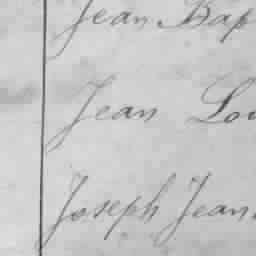 Jean Bap
Jean Lou
Joseph Jean